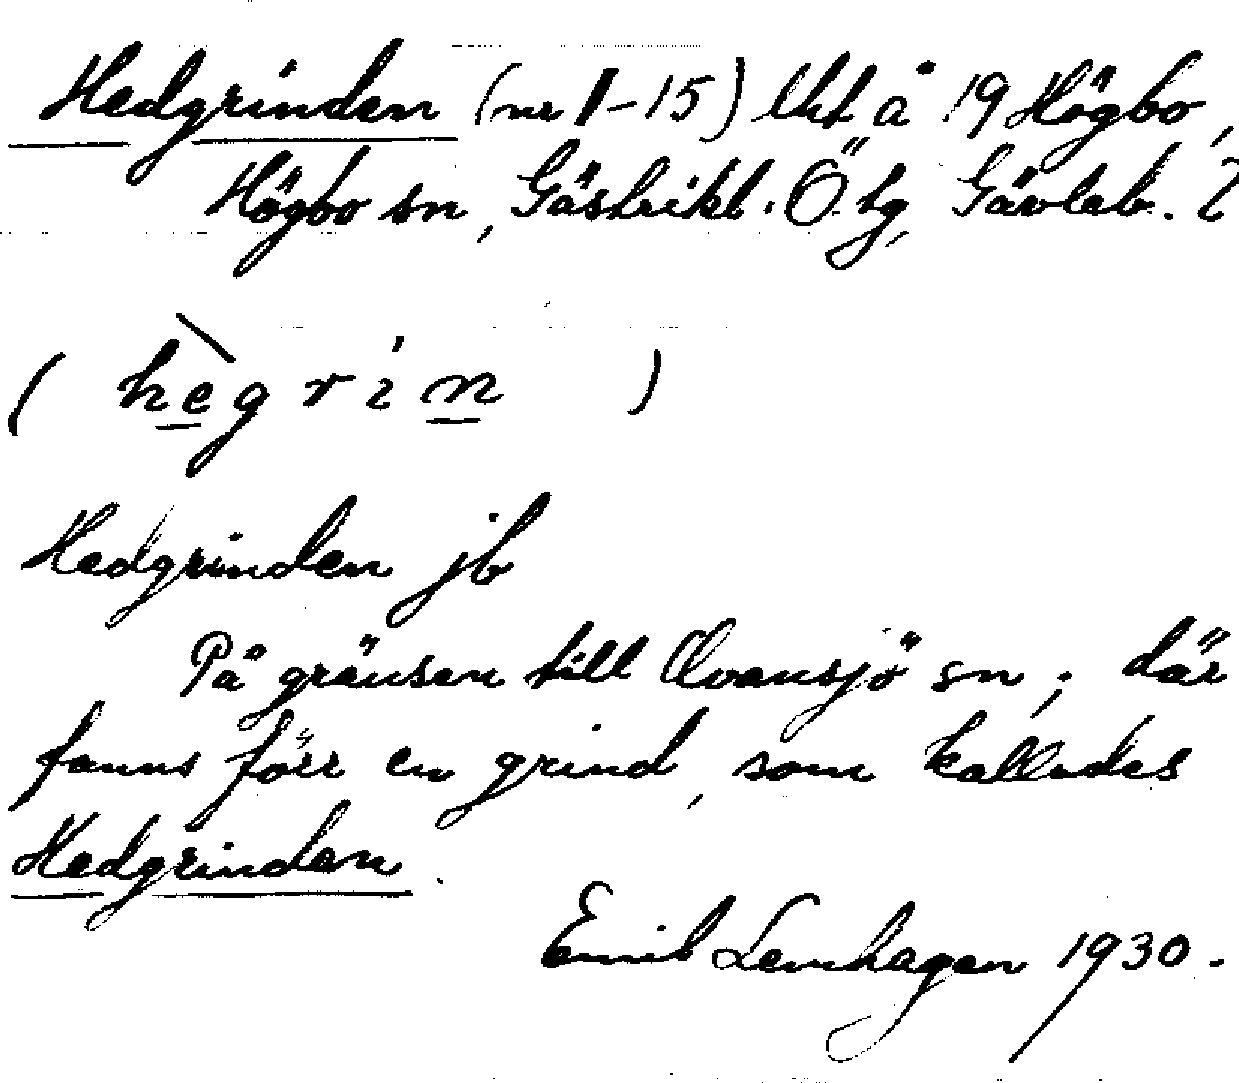 Hedgrinden (nr 1-15) lht å 19 Högbo,
Högbo sn, Gästrikl. Ö tg, Gävleb. l
( hègrin )
Hedgrinden jb
På gränsen till Ovansjö sn; där
fanns förr en grind, som kallades
Hedgrinden.
Emil Lemhagen 1930.